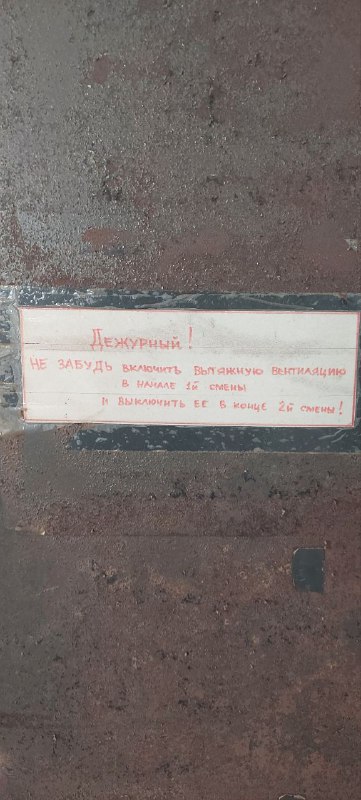 Дежурный!
НЕ ЗАБУДЬ ВКЛЮЧИТЬ ВЫТЯЖНУЮ ВЕНТИЛЯЦИЮ
В НАЧАЛЕ 1й СМЕНЫ
И ВЫКЛЮЧИТЬ ЕЕ В КОНЦЕ 2й СМЕНЫ!